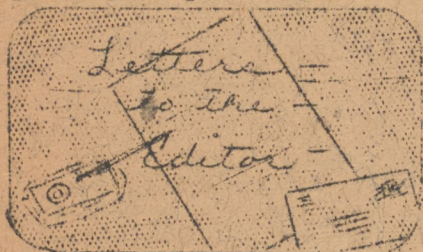 Letters =
to the -
Editor -